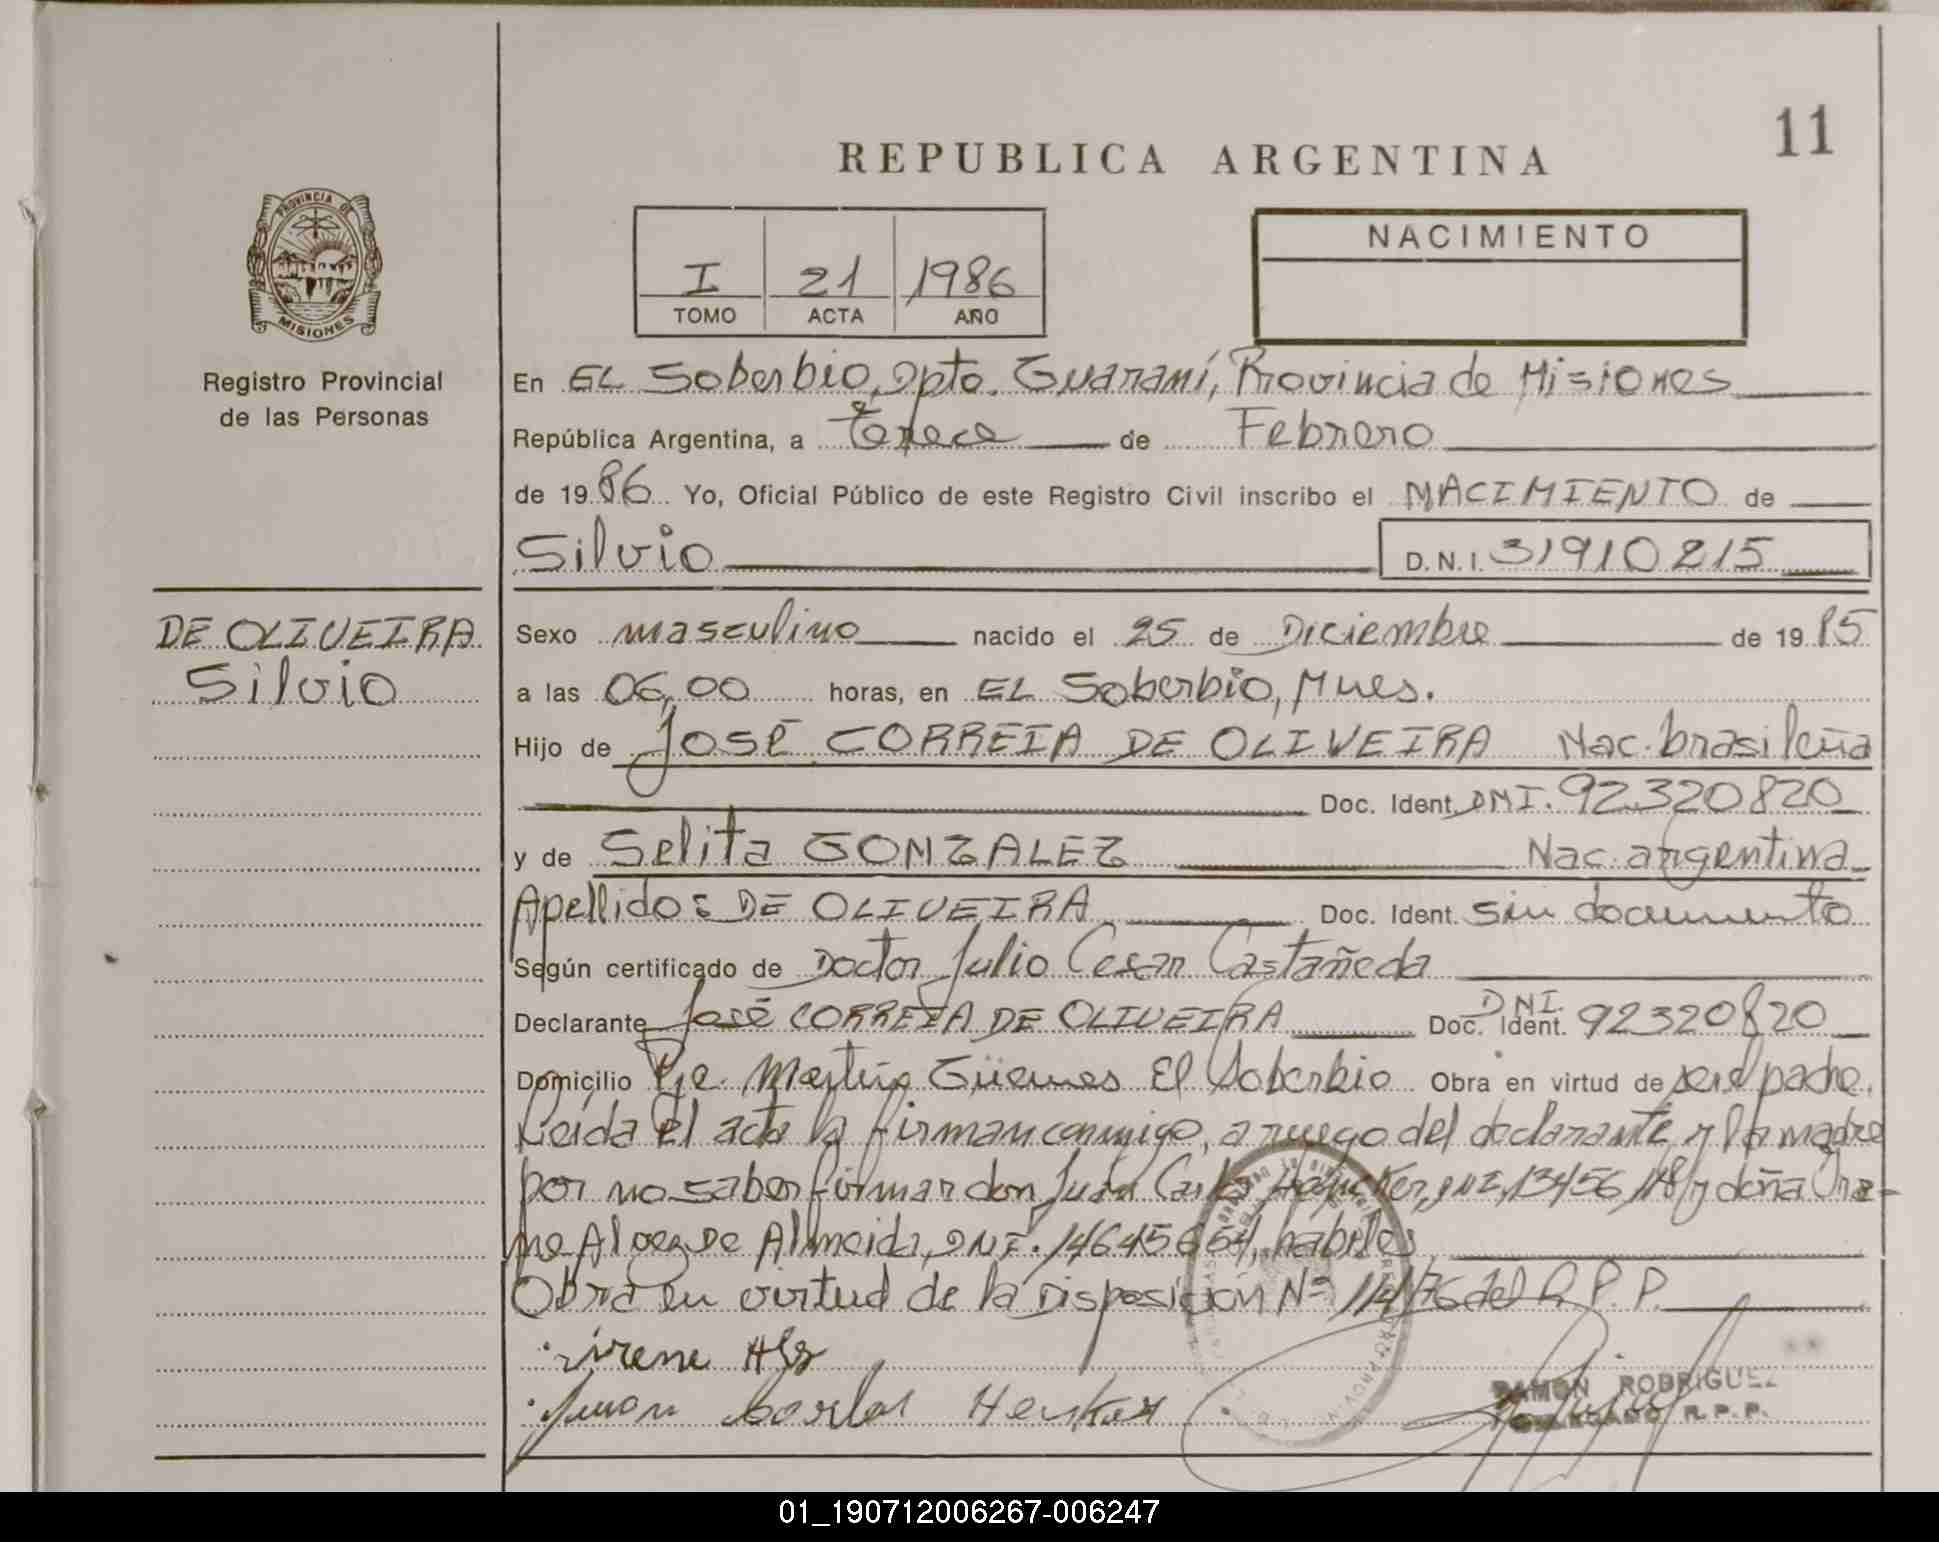 11
REPUBLICA ARGENTINA
PROVINCIA DE
MISIONES
Registro Provincial
de las Personas
I 21 1986
TOMO ACTA AÑO
NACIMIENTO
En EL Soberbio, Dpto. Guaraní, Provincia de Misiones
República Argentina, a Trece de Febrero
de 1986 Yo, Oficial Público de este Registro Civil inscribo el NACIMIENTO de
Silvio D.N.I. 31910215
DE OLIVEIRA
Silvio
Sexo masculino nacido el 25 de Diciembre de 1985
a las 06,00 horas, en EL Soberbio, Mnes.
Hijo de José CORREIA DE OLIVEIRA Nac. brasileña
Doc. Ident. DNI. 92.320820
y de Selita GONZALEZ Nac. argentina
Apellido: DE OLIVEIRA Doc. Ident. sin documento
Según certificado de Doctor Julio Cesar Castañeda
Declarante José CORREIA DE OLIVEIRA Doc. Ident. DNI 92320820
Domicilio Pje. Martín Güemes El Soberbio Obra en virtud de ser el padre.
Leída el acta la firman conmigo, a ruego del declarante y la madre
por no saber firmar don Juan Carlos DNI, 13456118 y doña Ire-
ne Alvez De Almeida, DNI. 14645654, habiles
Obra en virtud de la Disposición Nº 114/76 del R.P.P.
irene
Juan Carlos
RAMON RODRIGUEZ
DELEGADO R.P.P.
01_190712006267-006247